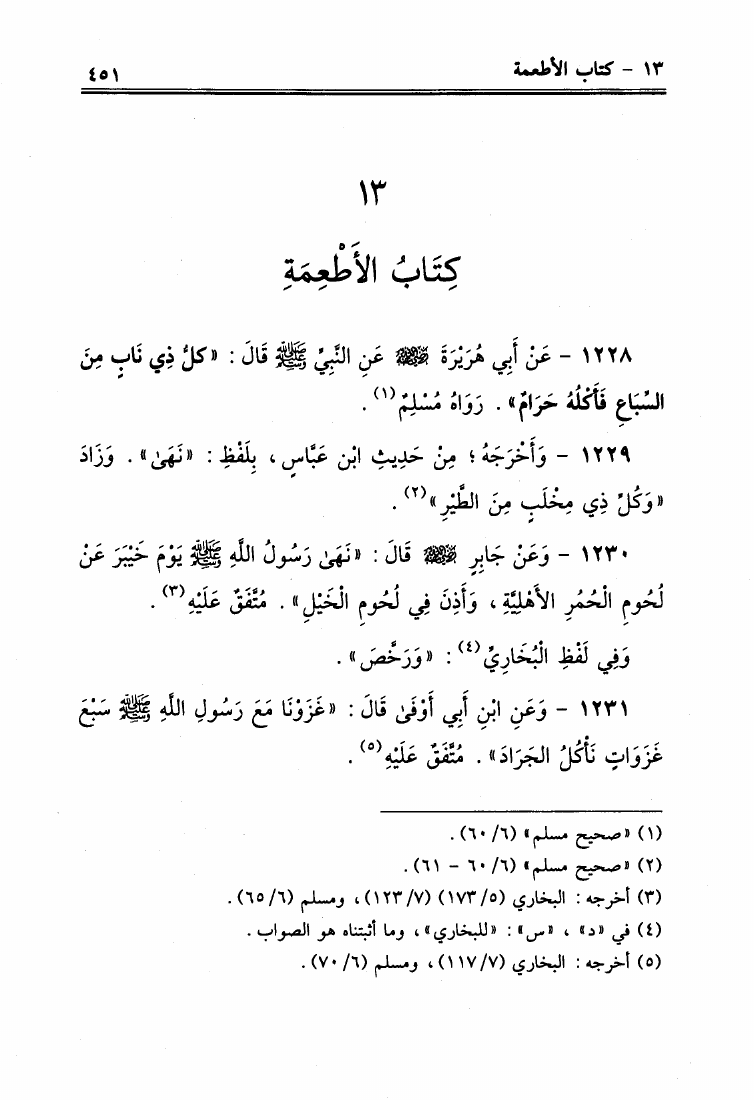 ١٣ - كتاب الأطعمة
٤٥١
١٣
كِتَابُ الأَطْعِمَةِ
١٢٢٨ - عَنْ أَبِي هُرَيْرَةَ ﵁ عَنِ النَّبِيِّ ﷺ قَالَ : «كلُّ ذِي نَابٍ مِنَ
السِّبَاعِ فَأَكْلُهُ حَرَامٌ» . رَوَاهُ مُسْلِمٌ(١) .
١٢٢٩ - وَأَخْرَجَهُ ؛ مِنْ حَدِيثِ ابْنِ عَبَّاسٍ ، بِلَفْظِ : «نَهَىٰ» . وَزَادَ
«وَكُلِّ ذِي مِخْلَبٍ مِنَ الطَّيْرِ»(٢) .
١٢٣٠ - وَعَنْ جَابِرٍ ﵁ قَالَ : «نَهَىٰ رَسُولُ اللَّهِ ﷺ يَوْمَ خَيْبَرَ عَنْ
لُحُومِ الْحُمُرِ الأَهْلِيَّةِ ، وَأَذِنَ فِي لُحُومِ الْخَيْلِ» . مُتَّفَقٌ عَلَيْهِ(٣) .
وَفِي لَفْظِ الْبُخَارِيِّ(٤) : «وَرَخَّصَ» .
١٢٣١ - وَعَنِ ابْنِ أَبِي أَوْفَىٰ قَالَ : «غَزَوْنَا مَعَ رَسُولِ اللَّهِ ﷺ سَبْعَ
غَزَوَاتٍ نَأْكُلُ الجَرَادَ» . مُتَّفَقٌ عَلَيْهِ(٥) .
(١) «صحيح مسلم» (٦/ ٦٠) .
(٢) «صحيح مسلم» (٦/ ٦٠ - ٦١) .
(٣) أخرجه : البخاري (٥/ ١٧٣) (٧/ ١٢٣) ، ومسلم (٦/ ٦٥) .
(٤) في «د» ، «س» : «للبخاري» ، وما أثبتناه هو الصواب .
(٥) أخرجه : البخاري (٧/ ١١٧) ، ومسلم (٦/ ٧٠) .